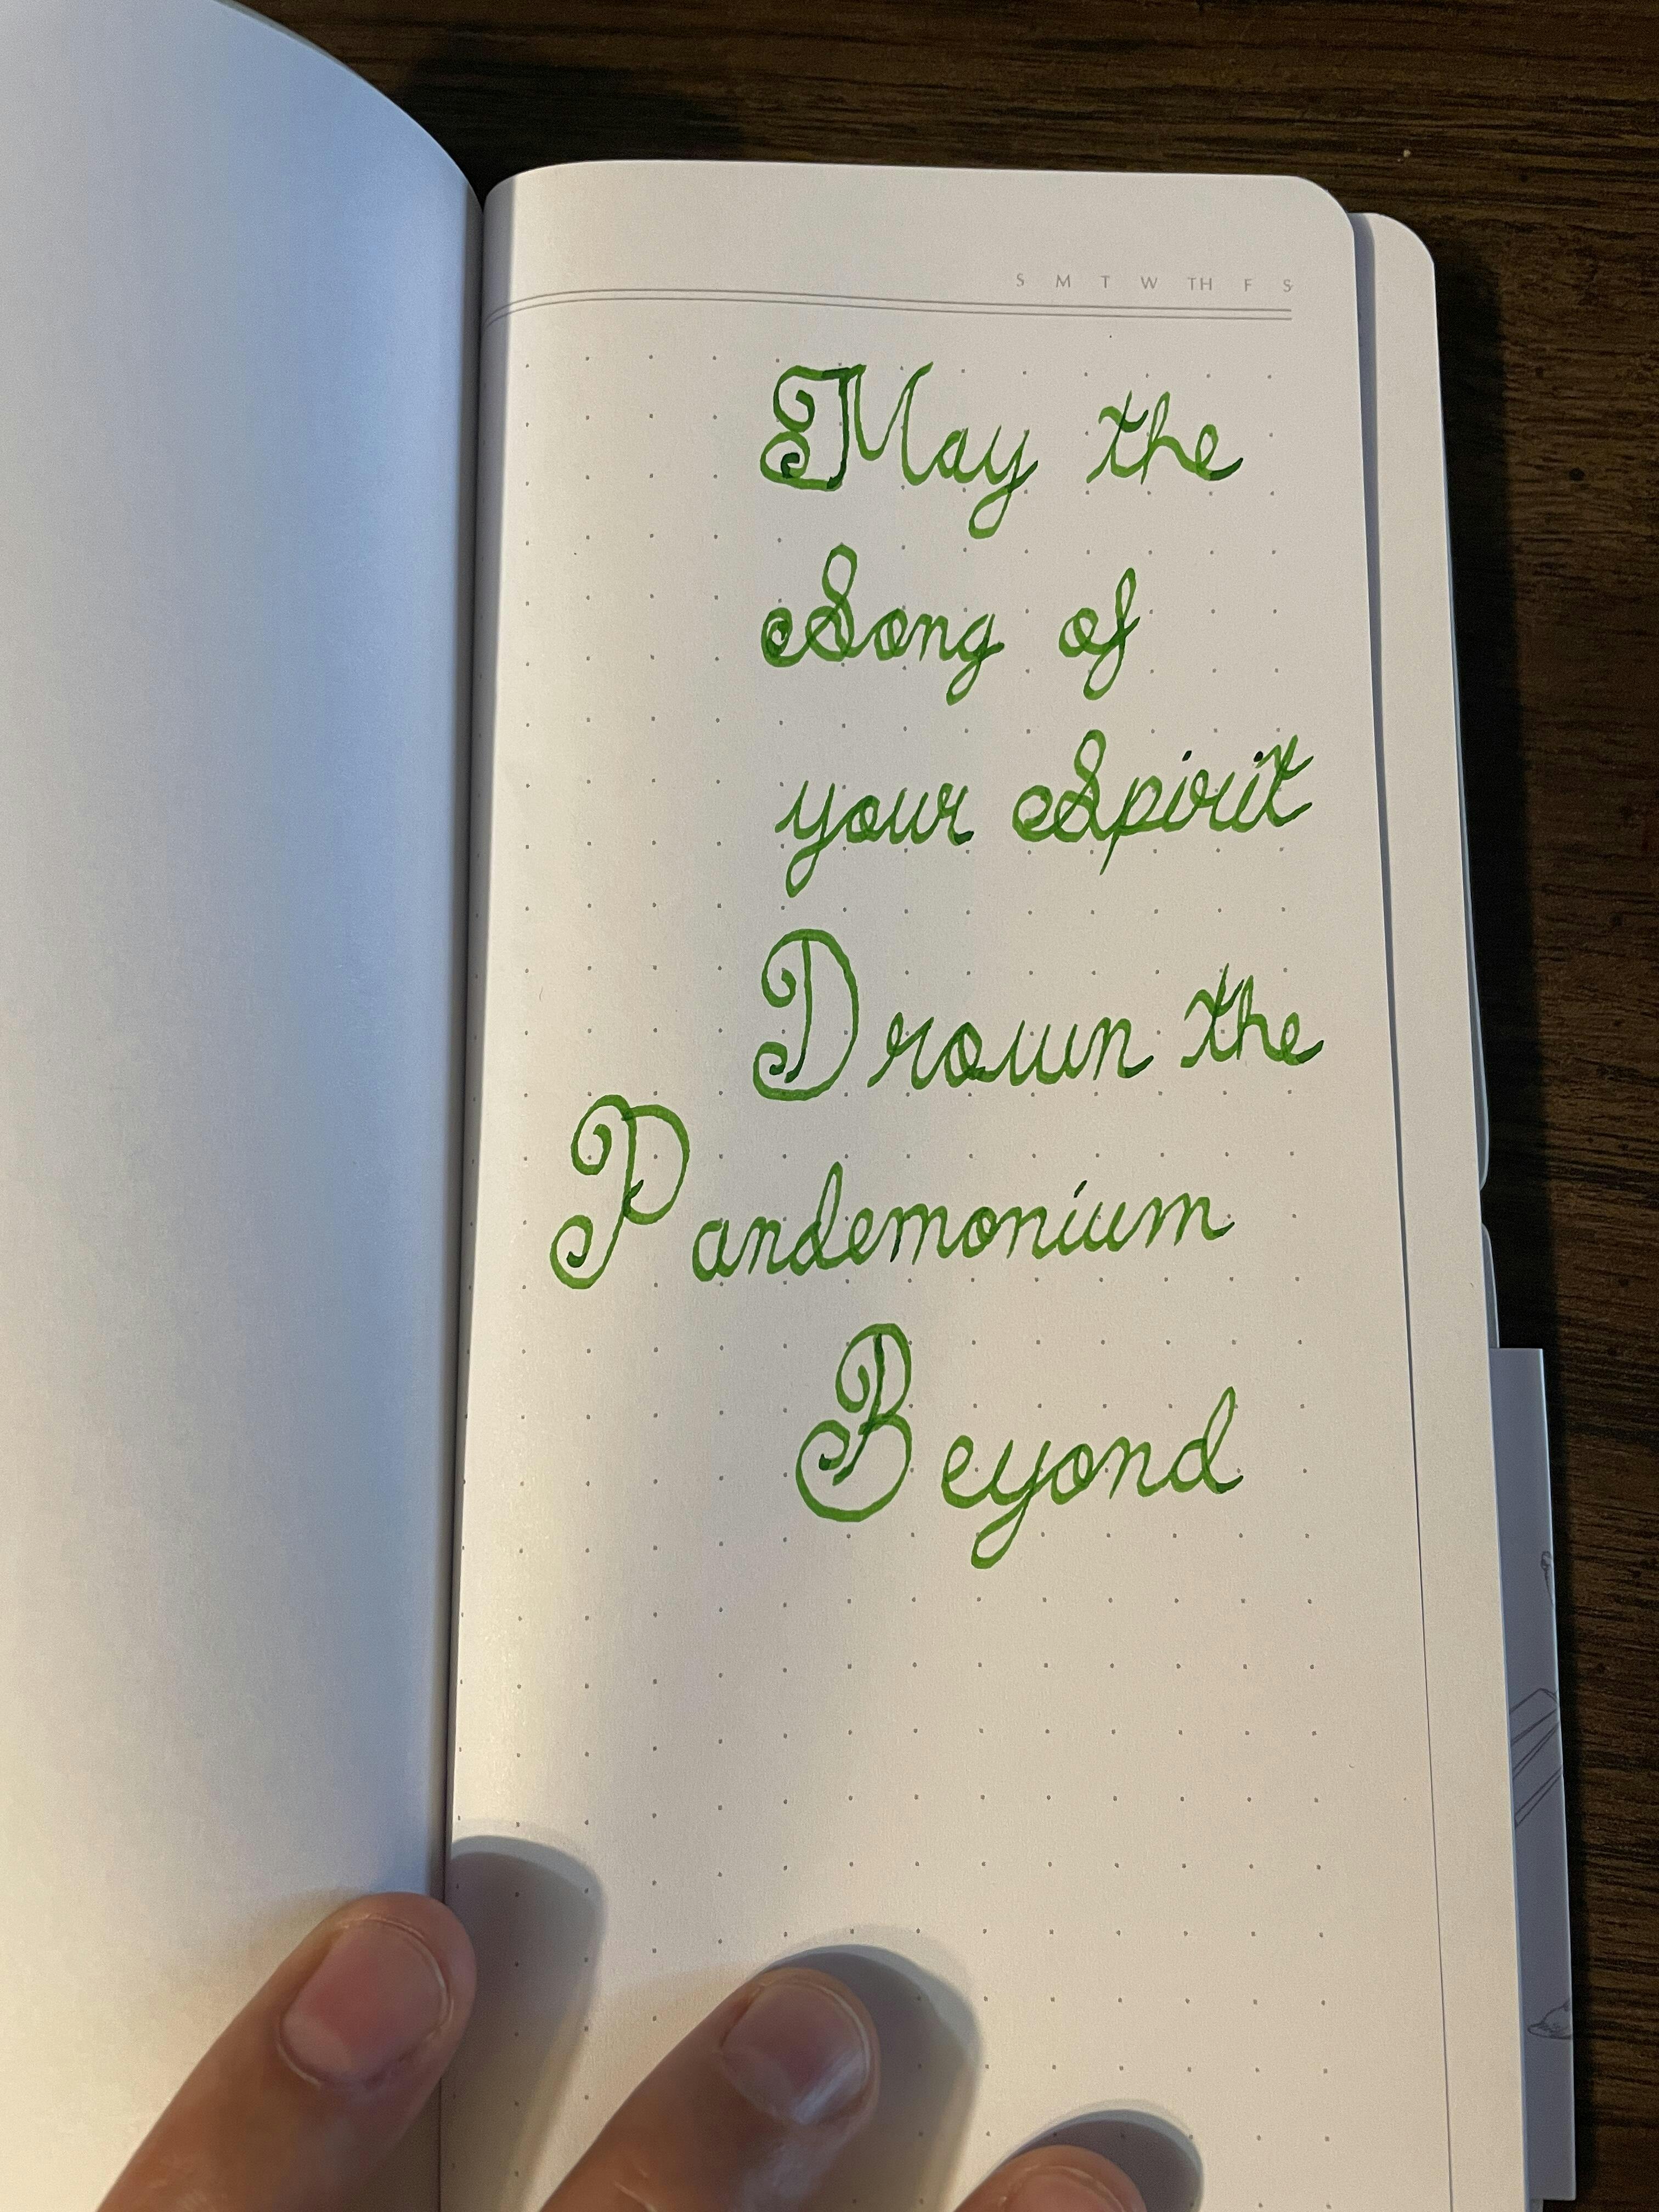 S M T W TH F S
May the
Song of
your Spirit
Drown the
Pandemonium
Beyond